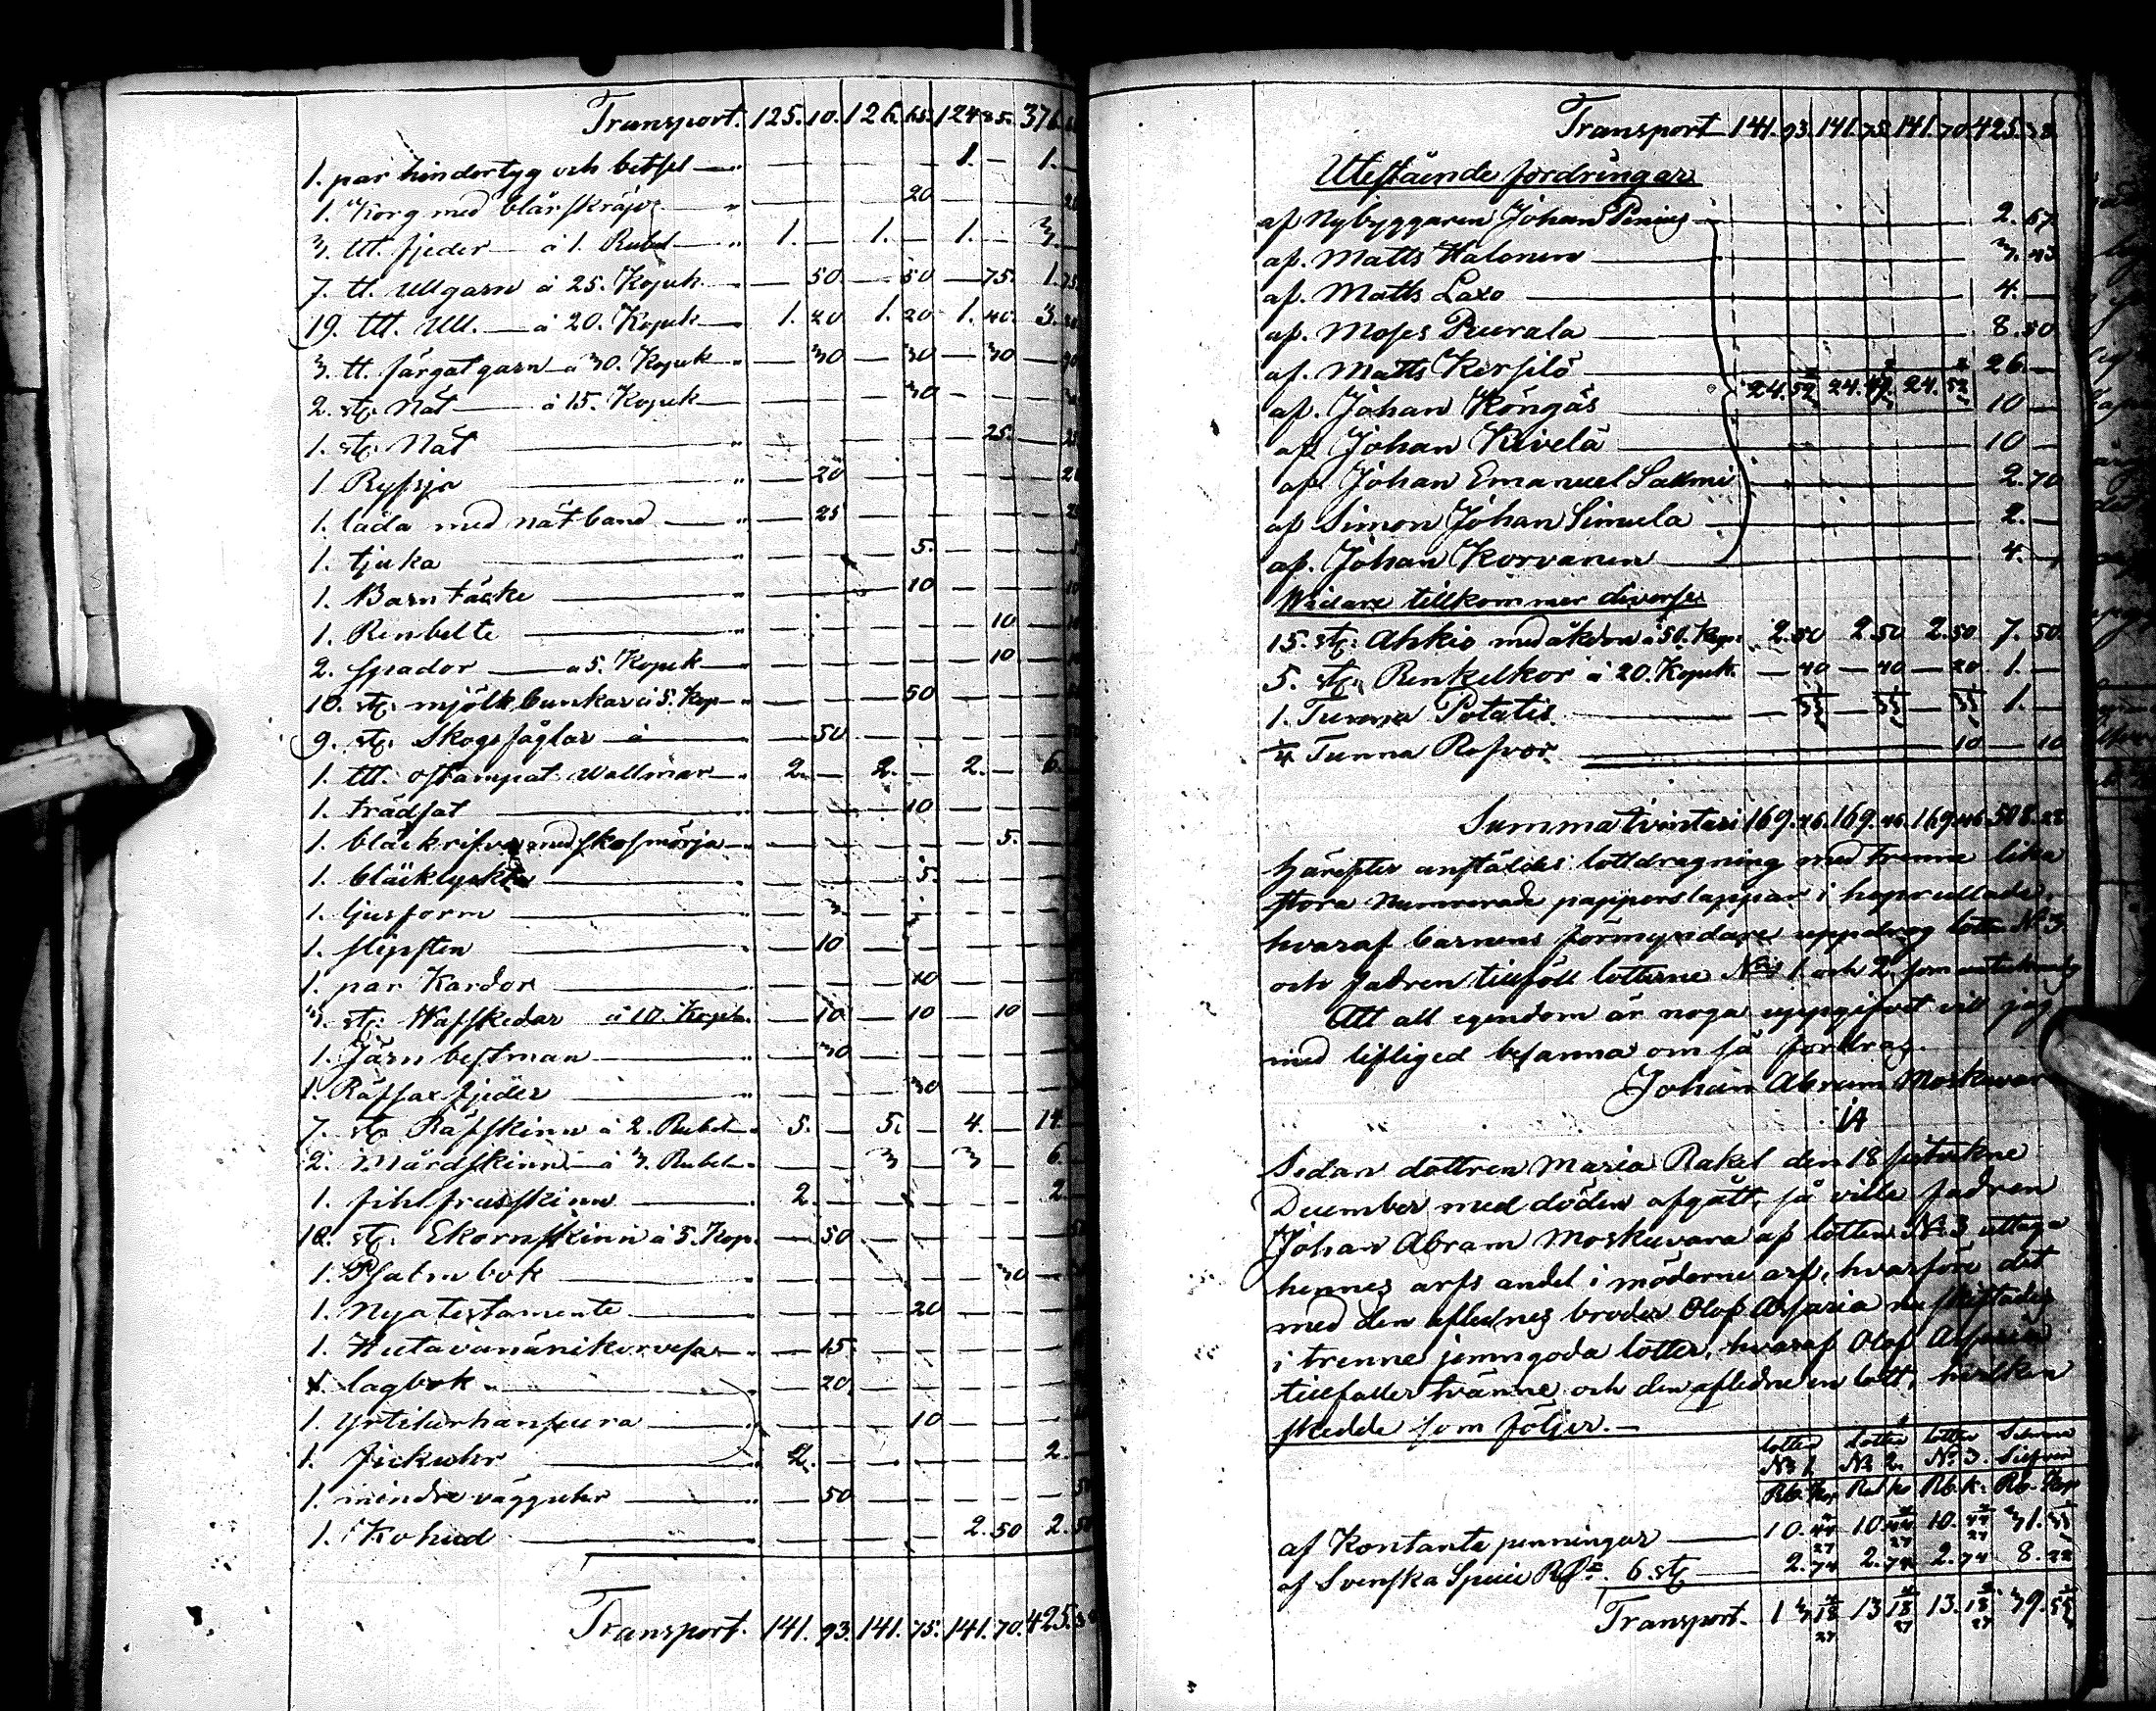 Transport. 125. 10. 126. 65. 124 85. 376.
1. par hindertyg och betsel — — — — — 1. — 1. —
1. Korg med blårskräp — — — — 20 — — 20
3. ℔. fjeder — à 1. Rubel — 1. — 1. — 1. — 3. —
7. ℔. Ullgarn à 25. Kopek — — 50. — 50 — 75. 1. 75
19. ℔. Ull. — à 20. Kopek — 1. 20 1. 20 1. 40. 3. 80
3. ℔. färgat garn — à 30. Kopek — — 30 — 30 — 30 — 90
2. st. Nät — à 15. Kopek — — — — 30 — — — 30
1. st. Nät — — — — — — 25. — 25
1 Ryssja — — 20 — — — — — 20
1. låda med nätband — — 25 — — — — — 25
1. tjuka — — — — 5. — — — 5
1. Barn täcke — — — — 10 — — — 10
1. Renbelte — — — — — — 10 — 10
2. spador — à 5. Kopek — — — — — — 10 — 10
10. st. mjölkbunkar à 5. Kop — — — — 50 — — —
9. st. Skogsfåglar — à — — 50 — — — — —
1. ℔. ostampat Wallmar — 2. — 2. — 2. — 6. —
1. trädfat — — — — 10 — — —
1. bläckrifva med skosmörja — — — — — — 5. —
1. bläcklyckta — — — — 5. — — —
1. ljusform — — 3 — — — — —
1. slipsten — — 10 — — — — —
1. par Kardor — — — — 10 — — —
3. st. Wafskedar à 10. Kopek — — 10 — 10 — 10 —
1. Järn bestman — — 30 — — — — —
1. Räfsax fjeder — — — — 30 — — —
7. st. Räfskinn à 2. Rubel — 5. — 5. — 4. — 14.
2. Mårdskinn — à 3. Rubel — — — 3 — 3 — 6.
1. fihlfrasskinn — 2. — — — — — 2
10. st. Ekornskinn à 5. Kop. — 50 — — — — 50
1. Psalmbok — — — — — — 30 —
1. Nya testamente — — — — 20 — — —
1. — — 15. — — — — —
1. lagbok — — 20. — — — — —
1. — — — — 10 — — —
1. fickuhr — 2. — — — — — 2. —
1. mindre vägguhr — — 50 — — — — — 50
1. Kohud — — — — — 2. 50 2. 50
Transport. 141. 93. 141. 75. 141. 70. 425. 38
Transport 141. 93. 141. 75. 141. 70. 425. 38
Utestående fordringar
af Nybyggaren Johan — 2. 67
af. Matts Halonen — 3. 43
af. Matts Laxo — 4. —
af. Moses Puurala — 8. 50
af. Matts Kersilö — 26. —
af. Johan Köngäs — 24. 52 24. 47. 24. 52 10 —
af Johan Kivelä — 10 —
af Johan Emanuel Salmi — 2. 70
af Simon Johan Simula — 2. —
af. Johan Korvanen — 4. —
Widare tillkommer diverse
15. st. Ahkio med åkdon à 50. Kop. 2. 50 2 50 2. 50 7. 50
5. st. Renkelkor à 20. Kopek. — 40 — 40 — 20 1. —
1. Tunna Potatis — — 33 — 33 — 33 1. —
1/4 Tunna Rofvor. — 10 — 10
Summa tvistari 169. 46. 169. 46 169. 46 508. 22
Härefter anstäldes lottdragning med trenne lika
stora Numrerade papperslappar i hoprullade,
hvaraf barnens förmyndare uppdrog lotten No 3
och fadren tillföll lotterne No 1 och 2. som
Att all egendom är noga uppgifvet vill jag
med lifliged besanna om så fordras.
Johan Abram Moskuvara
Sedan dottren Maria Rakel den 18 sistvekne
December med döden afgått, så ville fadren
Johan Abram Moskuvara af lotten No 3 uttaga
hennes arfs andel i möderne arf, hvarföre det
med den aflednes broder Olof Assaria nu skiftades
i trenne jemngoda lotter, hvaraf Olof Assaria
tillfaller tvänne och den afledne en lott, hvilken
skedde som följer. —
lotten lotten lotten Summa
No 1 No 2. No 3. Silfver
Rb. Kop Rb. ko Rb. k. Rb. Kop
af Kontanta penningar — 10. 44 10 44 10. 44 31. 33
af Svenska Specie Rd. 6. st — 2. 74 2. 74 2. 74 8. 22
Transport. 13 18 13 18 13. 18 39. 55